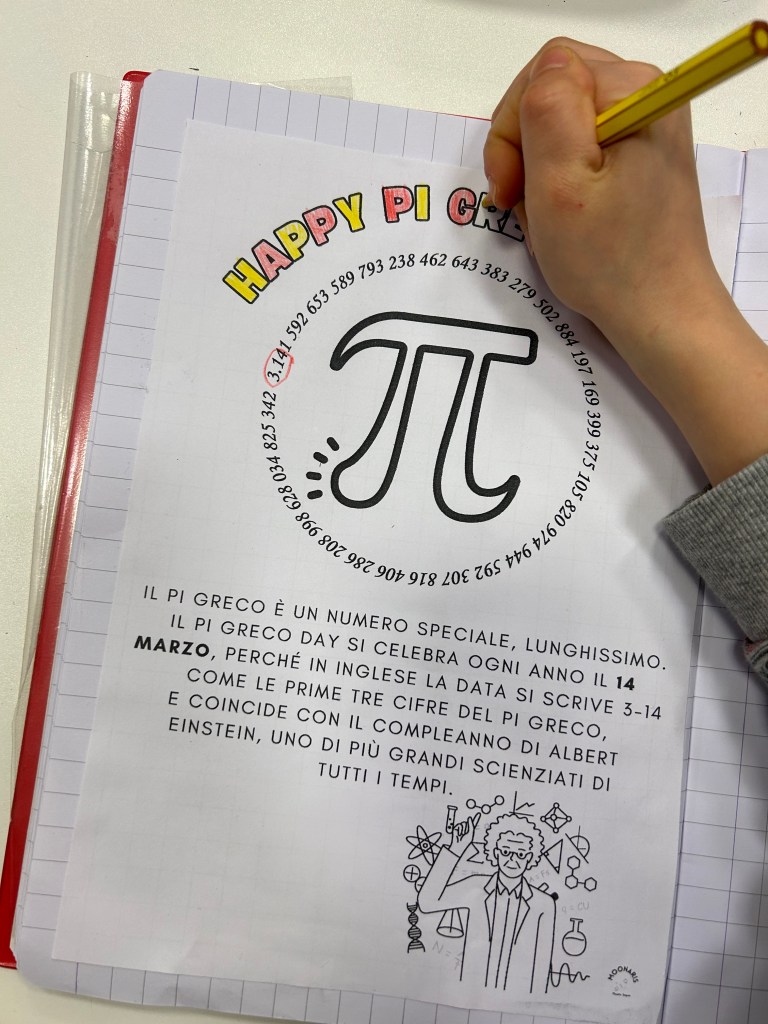 HAPPY PI GRE
3.141 592 653 589 793 238 462 643 383 279 502 884 197 169 399 375 105 820 974 944 592 307 816 406 286 208 998 628 034 825 342
π
IL PI GRECO È UN NUMERO SPECIALE, LUNGHISSIMO.
IL PI GRECO DAY SI CELEBRA OGNI ANNO IL 14
MARZO, PERCHÉ IN INGLESE LA DATA SI SCRIVE 3-14
COME LE PRIME TRE CIFRE DEL PI GRECO,
E COINCIDE CON IL COMPLEANNO DI ALBERT
EINSTEIN, UNO DI PIÙ GRANDI SCIENZIATI DI
TUTTI I TEMPI.
MOONARIS